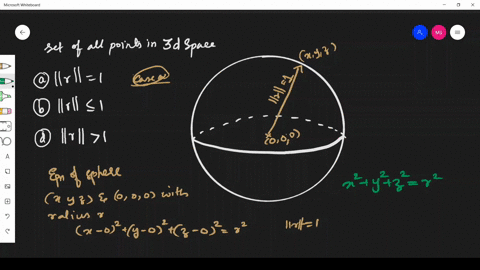 Microsoft Whiteboard
MS
set of all points in 3d space
(a) ||r|| = 1
case a
(b) ||r|| ≤ 1
(d) ||r|| > 1
(x, y, z)
||r|| = 1
(0, 0, 0)
Eqn of sphere
(x y z) & (0, 0, 0) with
radius r
(x-0)² + (y-0)² + (z-0)² = r²
||r|| = 1
x² + y² + z² = r²